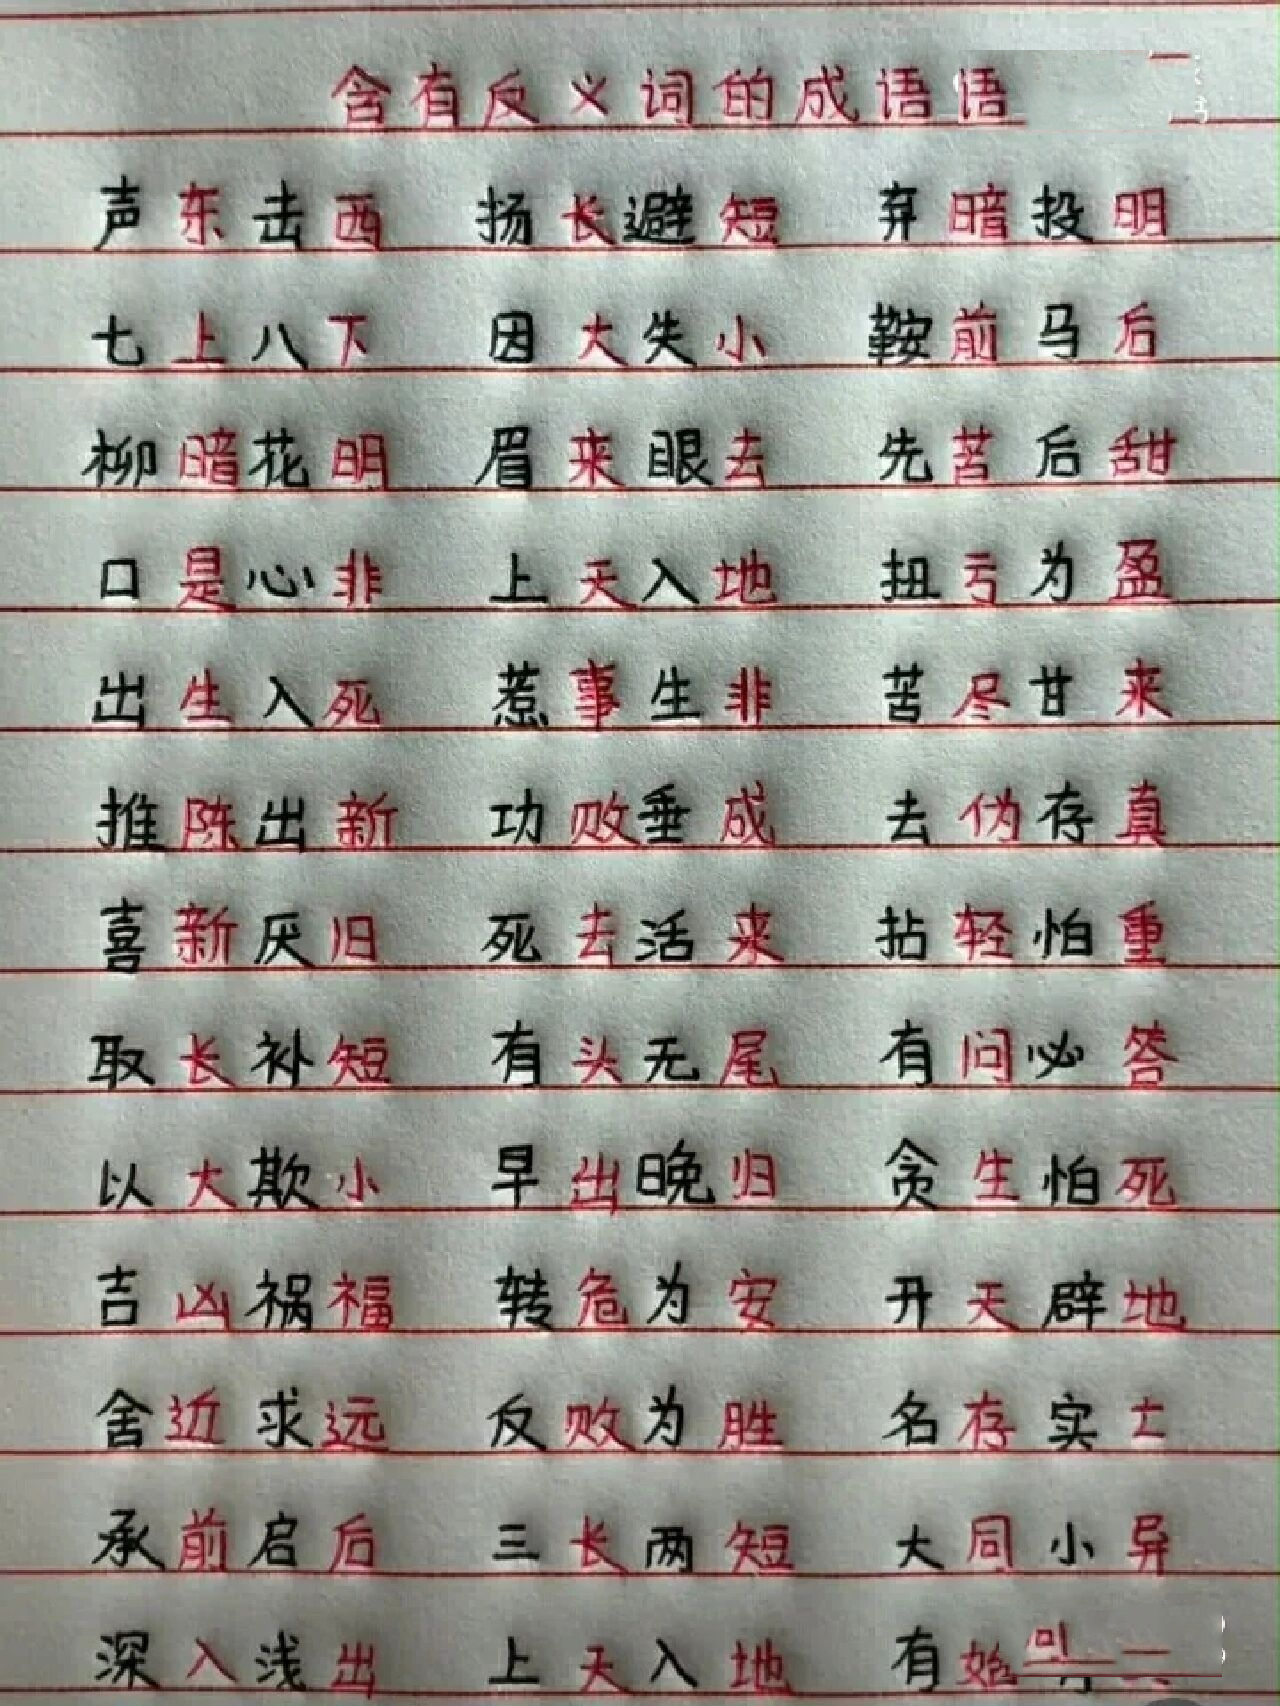 含有反义词的成语语
声东击西 扬长避短 弃暗投明
七上八下 因大失小 鞍前马后
柳暗花明 眉来眼去 先苦后甜
口是心非 上天入地 扭亏为盈
出生入死 惹事生非 苦尽甘来
推陈出新 功败垂成 去伪存真
喜新厌旧 死去活来 拈轻怕重
取长补短 有头无尾 有问必答
以大欺小 早出晚归 贪生怕死
吉凶祸福 转危为安 开天辟地
舍近求远 反败为胜 名存实
承前启后 三长两短 大同小异
深入浅出 上天入地 有始